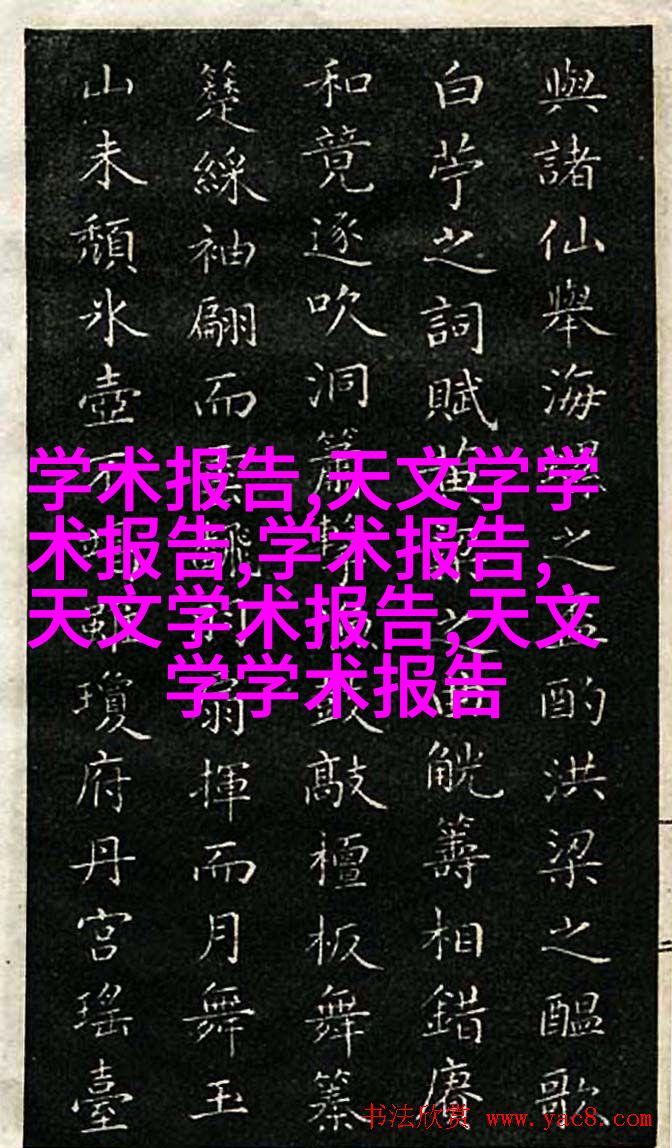 與諸仙舉海之酌洪梁之醞歌
白苧之詞賦之觥籌相錯賡
和竟逐吹洞簫鼓敲檀板舞
綵袖翩而扇揮而月舞玉
山未頹氷壺不瓊府丹宮瑤臺
学术报告,天文学学
术报告,学术报告,
天文学术报告,天文
学学术报告
书法欣赏 www.yac8.com